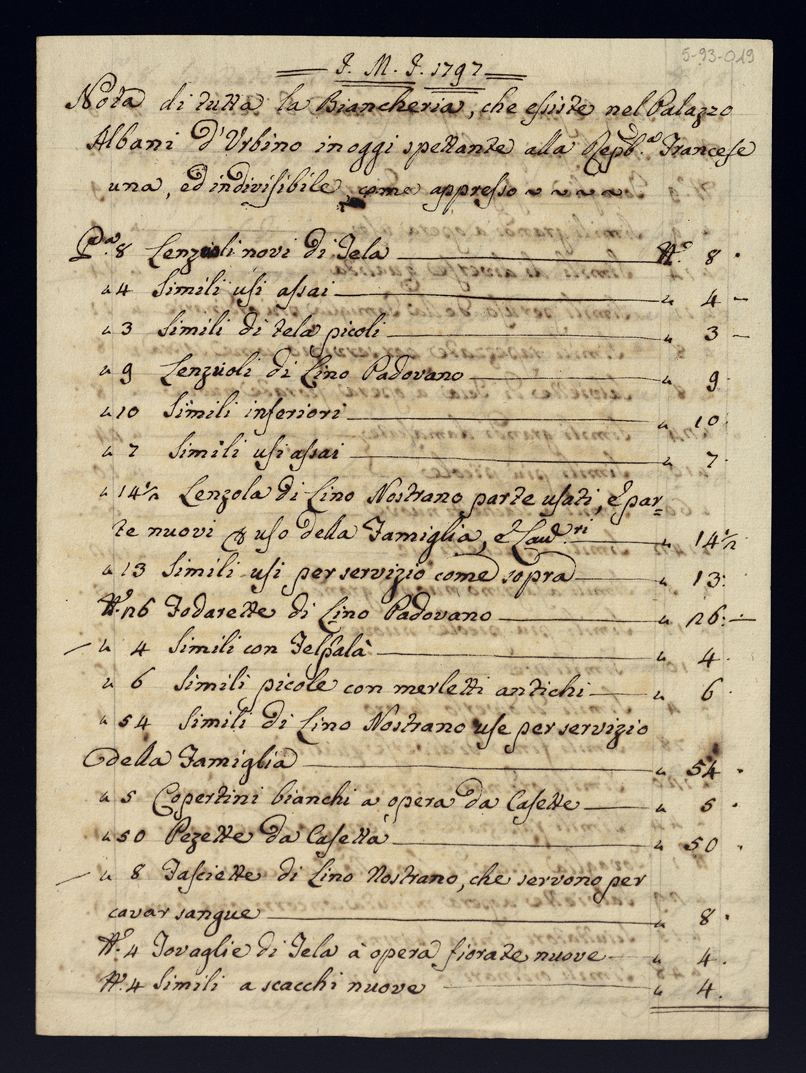 5-93-019
J. M. J. 1797
Nota di tutta la Biancheria, che esiste nel Palazzo
Albani d'Urbino in oggi spettante alla Repb.a Francese
una, ed indivisibile, come appresso
P.a 8 Lenzuoli novi di Tela N.o 8
" 4 Simili usi assai " 4
" 3 Simili di tela picoli " 3
" 9 Lenzuoli di Lino Padovano " 9
" 10 Simili inferiori " 10
" 7 Simili usi assai " 7
" 14½ Lenzola di Lino Nostrano parte usati, e par=
te nuovi uso della Famiglia, e " 14½
" 13 Simili usi per servizio come sopra " 13:
N.o 26 Fodarette di Lino Padovano " 26:
" 4 Simili con Felpalà " 4
" 6 Simili picole con merletti antichi " 6
" 54 Simili di Lino Nostrano use per servizio
della Famiglia " 54
" 5 Copertini bianchi a opera da Casette " 5
" 50 Pezette da Casetta " 50
" 8 Fasciette di Lino Nostrano, che servono per
cavar sangue " 8
N.o 4 Tovaglie di Tela à opera fiorate nuove " 4
N.o 4 Simili a scacchi nuove " 4